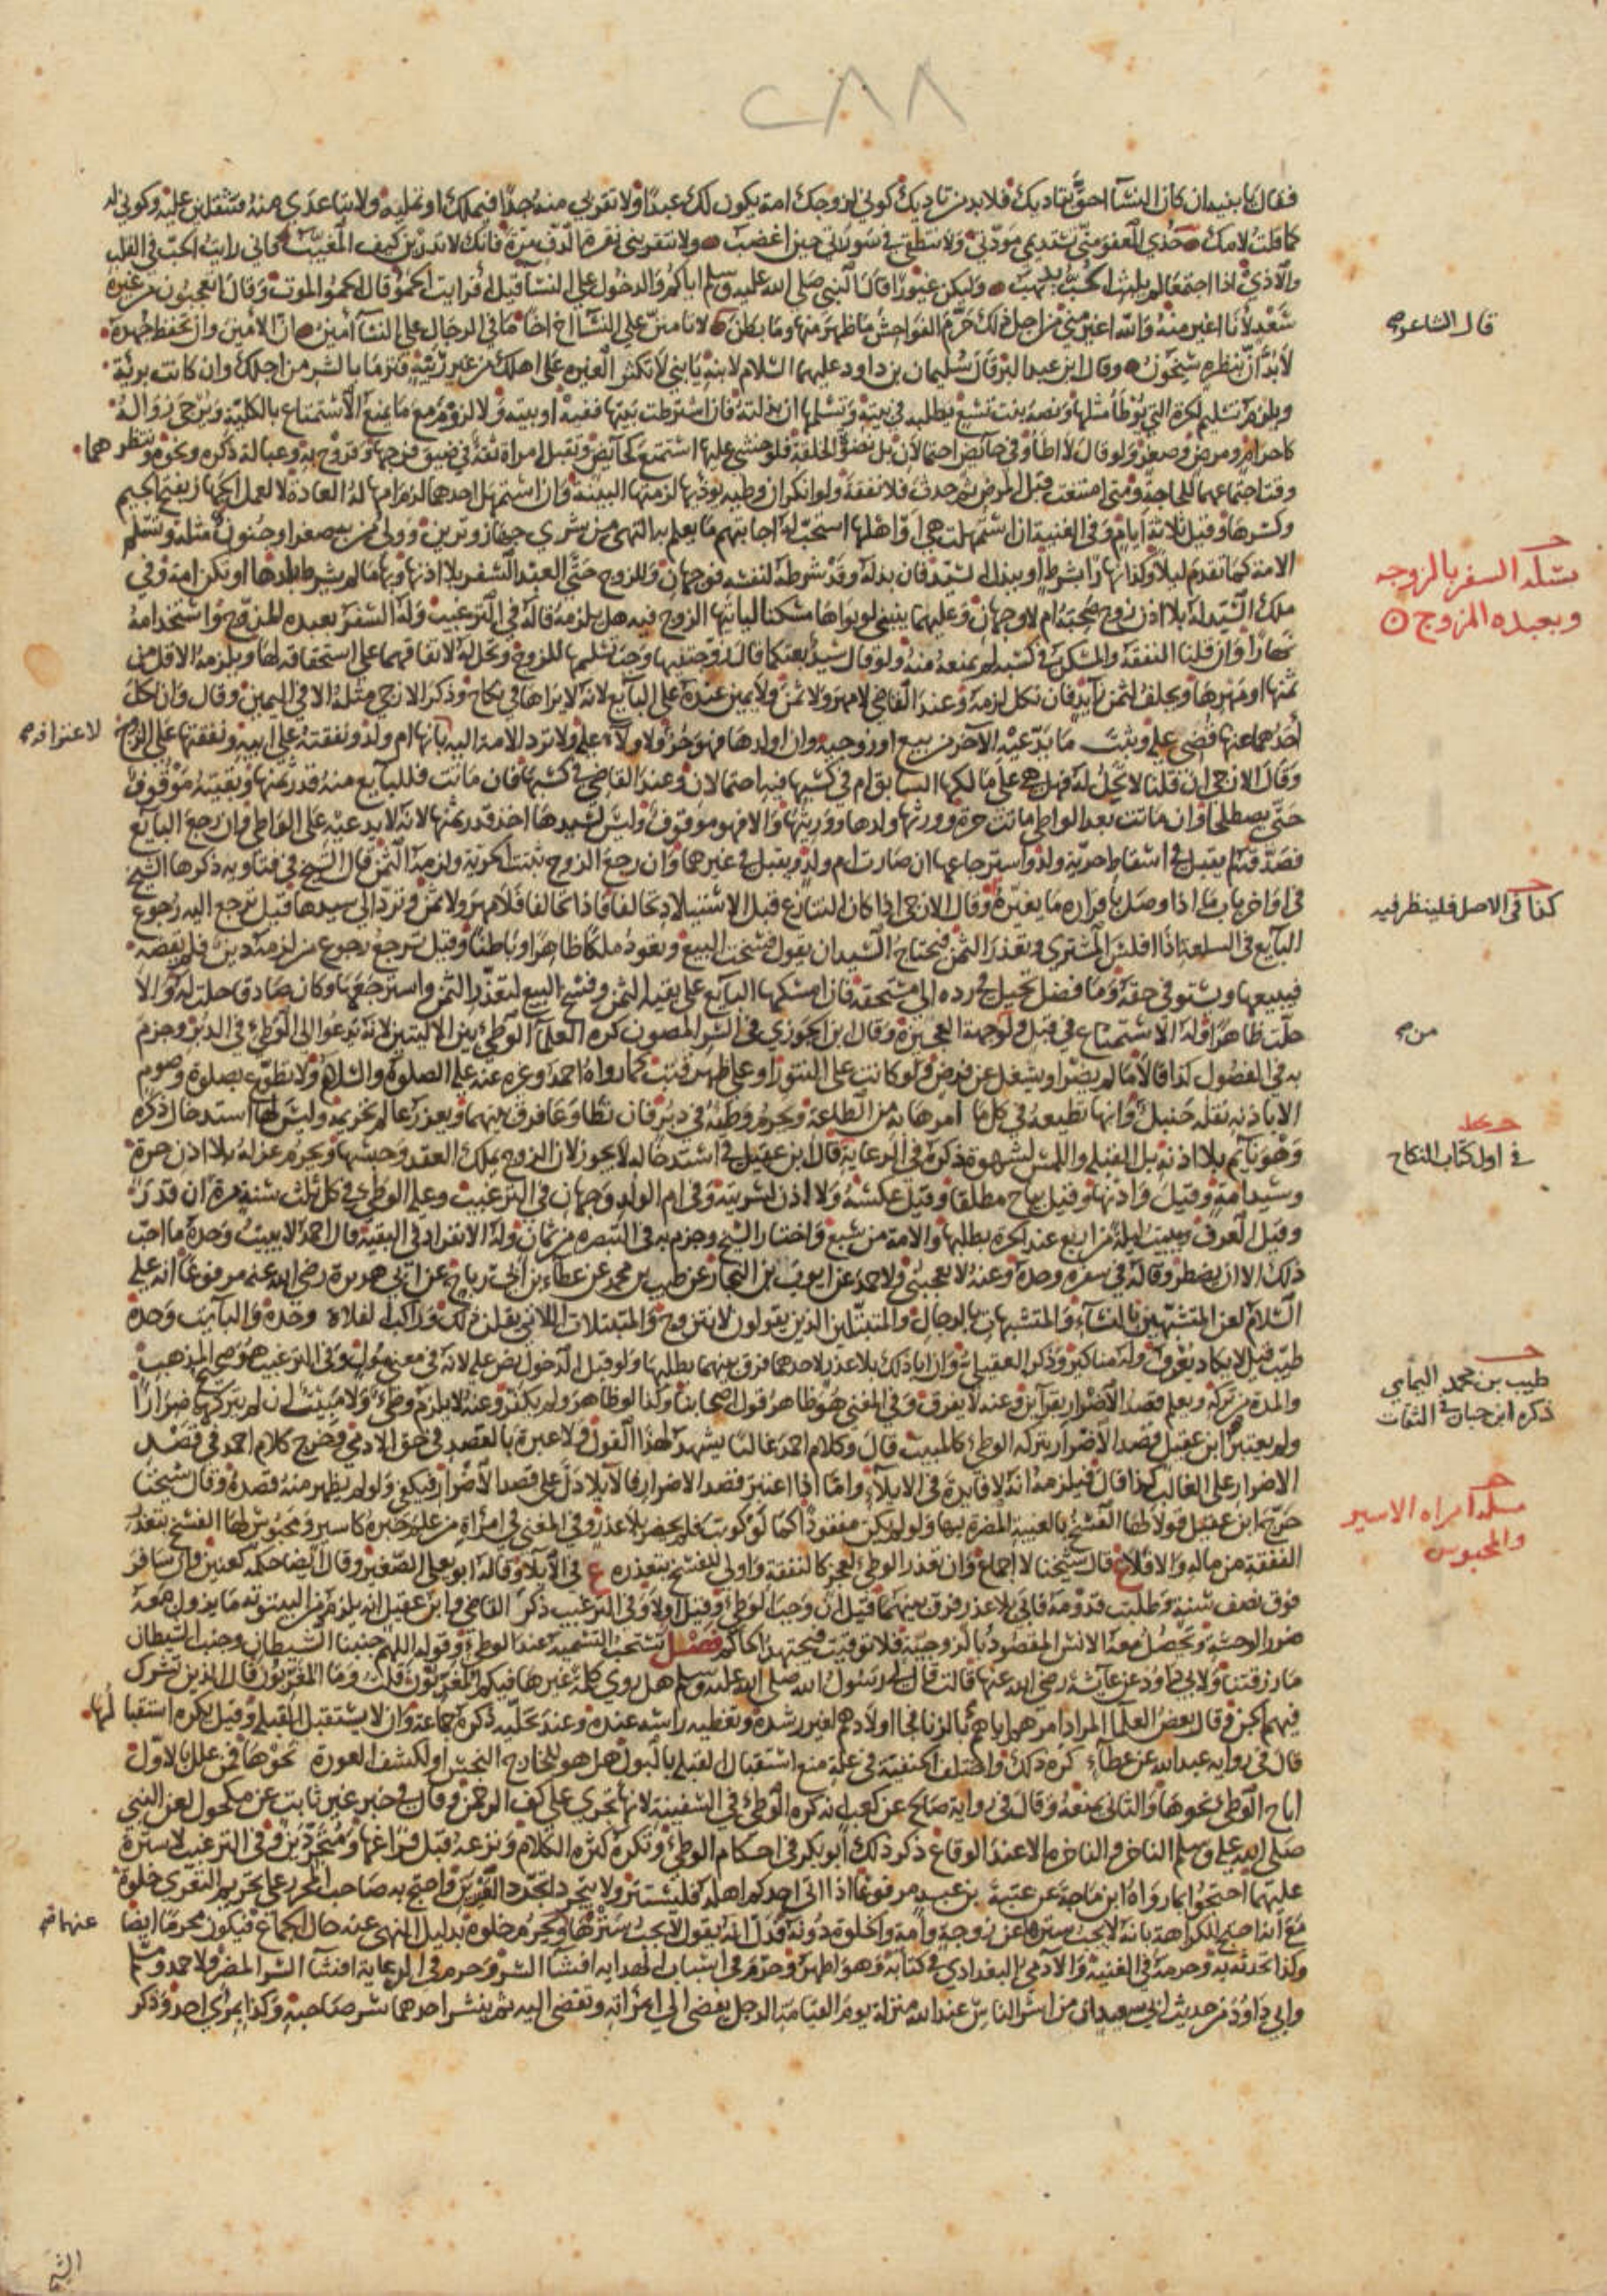 ٢٨٨
فقال يا بنيه ان كان النسآ احق بتاديبك فلا بد من تاديبك كوني لزوجك امة يكون لك عبدا ولا تقربي منه جدا فيملك او تمليه ولا تباعدي منه فتثقلين عليه وكوني له
كما قلت لامك خذي العفو مني تستديمي مودتي ولا تنطقي في سورتي حين اغضب ولا تنقريني نقرة الدف مرة فانك لا تدرين كيف المغيب فاني رايت الحب في القلب
والاذي اذا اجتمعا لم يلبث الحب يذهب وليكن غيورا قال النبي صلى الله عليه وسلم اياكم والدخول على النسآ قيل افرايت الحمو قال الحمو الموت وقال اتعجبون من غيرة
سعد لانا اغير منه والله اغير مني من اجل ذلك حرم الفواحش ما ظهر منها وما بطن لا تامنن على النسآ اخ اخا ما في الرجال على النسآ امين ان الامين وان تحفظ جهده
قال الشاعر
لا بد ان بنظرة سيخون وقال ابن عبد البر قال سليمان بن داود عليهما السلام لابنه يا بني لا تكثر الغيرة على اهلك من غير ريبة فترمى بالشر من اجلك وان كانت بريئة
ويلزم تسليم الحرة التي يوطأ مثلها ونصه بنت تسع بطلبه في بيته وتسلمها ان بذلته فان اشترطت بيتها ففيه او بيته ولا لزوم مع ما يمنع الاستمتاع بالكلية ويرجى زواله
كاحرام ومرض وصغر ولو قال لا اطأ وفي حائض احتمالان بل نضو الخلقة فلو خشي عليها استمتع كحائض ويقبل امراة ثقة في ضيق فرجها وقروح به وعبالة ذكره ونحوه وتنظرهما
وقت اجتماعهما للحاجة ومتى امتنعت قبل المرض ثم حدث فلا نفقة ولو انكر ان وطيه يوذيها لزمتها البينة وان استمهل احدهما لزم امهاله العادة لا لعمل الجهاز بفتح الجيم
وكسرها وقيل ثلاثة ايام وفي الغنية ان استمهلت هي او اهلها استحب له اجابتهم ما يعلم به التهي من شري جهاز وتزين وولي من به صغر او جنون مثله وتسلم
الامة كما تقدم ليلا وكذا نهارا بشرط او ببذل سيد فان بذله وقد شرطه لنفسه فوجهان وللزوج حتى العبد السفر بلا اذنها وبها ما لم يشترط بلدها او تكن امة وفي
مسئلة السفر بالزوجه
وبعبده المزوج
ملك السيد له بلا اذن زوج صحبه ام لا وجهان وعليهما ينبني لو بواها مسكنا لياتيها الزوج فيه هل يلزمه قاله في الترغيب وله السفر بعبده المزوج واستخدامه
نهارا وان قلنا النفقة والمسكن في كسبه لم يمنعه منه ولو قال سيد بعتكها قال زوجتنيها وجب تسليمها للزوج وتحل له لاتفاقهما على استحقاقه لها ويلزمه الاقل من
ثمنها او مهرها ويحلف لثمن زايد فان نكل لزمه وعند القاضي لا مهر ولا ثمن ولا يمين عنده على البائع لانه لا يراها في نكاح وذكر الازجي مثله الا في اليمين وقال وان نكل
احدهما عنها قضي عليه وثبت ما يدعيه الاخر من بيع او زوجية وان اولدها فهو حر ولا ولاء عليه ولا ترد الامة اليه بانها ام ولد ونفقته على ابيه ونفقتها على الزوج
لاعترافه
وقال الازجي ان قلنا لا تحل له فهل هي على مالكها السابق ام في كسبها فيه احتمالان وعند القاضي في كسبها فان ماتت فللبايع منه قدر ثمنها وبقيته موقوف
حتى يصطلحا وان ماتت بعد الواطي ماتت حرة وورثها ولدها وورثتها والا فهو موقوف وليس لسيدها اخذ قدر ثمنها لانه لا يدعيه على الواطي وان رجع البايع
فصدقه لم يقبل في اسقاط حرية ولد واسترجاعها ان صارت ام ولد ويقبل في غيرهما وان رجع الزوج ثبتت الحرية ولزمه الثمن قال الشيخ في فتاويه ذكرها الشيخ
في اواخر باب ما اذا وصل باقراره ما يغيره وقال الازجي اذا كان التنازع قبل الاستيلاد تحالفا فاذا تحالفا فلا مهر ولا ثمن وترد الى سيدها قيل ترجع اليه رجوع
كذا في الاصل فلينظر فيه
البايع في السلعة اذا افلس المشتري وتعذر الثمن فيحتاج السيد ان يقول فسخت البيع وتعود ملكا ظاهرا وباطنا وقيل ترجع رجوع من لزمه دين فلم يقضه
فيبيعها ويستوفي حقه وما فضل تحيل في رده الى مستحقه فان امسكها البايع على بقاء الثمن وفسخ البيع لتعذر الثمن واسترجعها وكان صادقا حلت له والا
حلت ظاهرا وله الاستمتاع في قبل ولو من جهة العجيزة وقال ابن الجوزي في السر المصون كره العلمآ الوطئ بين الاليتين لانه يدعوا الى الوطئ في الدبر وجزم
من
به في الفصول كذا قالا ما لم يضر او يشغل عن فرض ولو كانت على التنور او على ظهر قتب كما رواه احمد وغيره عنه عليه الصلوة والسلام ولا تطوع بصلوة وصوم
الا باذنه نقله حنبل وانها تطيعه في كل ما امرها به من الطاعة ويحرم وطئه في دبر فان تطاوعا فرق بينهما ويعزر عالم تحريمه وليس لها استدخال ذكره
في اول كتاب النكاح
وهو نايم بلا اذنه بل القبلة واللمس لشهوة ذكره في الرعاية قال ابن عقيل في استدخاله لا يجوز لان الزوج يملك العقد وحبسها ويحرم عزله بلا اذن حرة
وسيد امة وقيل واذنها وقيل يباح مطلقا وقيل عكسه ولا اذن لسرية وفي ام الولد وجهان في الترغيب وعليه الوطئ في كل ثلث سنة مرة ان قدر
وقيل العرف ويبيت ليلة من اربع عند الحرة بطلبها والامة من سبع واختار الشيخ وجزم به في التبصرة من ثمان وله الانفراد في البقية قال احمد لا يبيت وحده ما احب
ذلك الا ان يضطر وقاله في سفره وحده وعنه لا يعجبني ولاحمد عن ايوب بن النجار عن طيب بن محمد عن عطاء بن ابي رباح عن ابي هريرة رضي الله عنه مرفوعا انه عليه
السلام لعن المتشبهين بالنسآء والمتشبهات بالرجال والمتبتلين الذين يقولون لا نتزوج والمتبتلات اللائي يقلن ذلك وراكب الفلاة وحده والبايت وحده
طيب قيل لا يكاد يعرف وله مناكير وذكره العقيلي وان ابا ذلك بلا عذر لاحدهما فرق بينهما بطلبها ولو قبل الدخول نص عليه لانه في معنى مول وفي الترغيب هو صحيح المذهب
طيب بن محمد اليمامي
ذكره ابن حبان في الثقات
والمدة من تركه ويعلم قصد الاضرار بقرآين وعنه لا يفرق وفي المغني هو ظاهر قول اصحابنا وكذا لو ظاهر ولم يكفر وعنه لا يلزم وطئ ولا مبيت ان لم يتركهما ضرارا
ولم يعتبر ابن عقيل قصد الاضرار بتركه الوطئ كالمبيت قال وكلام احمد غالبا يشهد لهذا القول ولا عبرة بالقصد في حق الادمي وخرج كلام احمد في قصد
الاضرار على الغالب كذا قال فيلزمه انه لا فايدة في الايلاء واما اذا اعتبر قصد الاضرار فالايلا دل على قصد الاضرار فيكفي ولو لم يظهر منه قصده وقال شيخنا
خرج ابن عقيل قولا لها الفسخ بالغيبة المضرة بها ولو لم يكن مفقودا كما لو كوتب فلم يحضر بلا عذر وفي المغني في امراة من علم خبره كاسير ومحبوس لها الفسخ بتعذر
مسئله امراه الاسير
والمحبوس
النفقة من ماله والا فلا ع قال شيخنا لا اجماع وان تعذر الوطئ لعجز كالنفقة واولى للفسخ بتعذره ع في الايلا وقاله ابو يعلى الصغير وقال ايضا حكمه كعنين وان سافر
فوق نصف سنة وطلبت قدومه فابى بلا عذر فرق بينهما قيل ان وجب الوطئ وقيل اولا وفي الترغيب ذكر القاضي وابن عقيل انه يلزم من البيتوتة ما يزول معه
ضرر الوحشة ويحصل معه الانس المقصود بالزوجية فلا توقيت فيجتهد الحاكم فصل تستحب التسمية عند الوطئ وقوله اللهم جنبنا الشيطان وجنب الشيطان
ما رزقتنا ولابي داود عن عايشة رضي الله عنها قالت قال لي رسول الله صلى الله عليه وسلم هل روي كلمة غيرها فيكم المغربون قلت وما المغربون قال الذين تشرك
فيهم الجن وقال بعض العلمآ المراد امرهم اياهم بالزنا فجا اولادهم لغير رشدة وتغطية راسه عنده وعند تخليه ذكره جماعة وان لا يستقبل القبلة وقيل يكره استقبالها
قال في رواية عبد الله عن عطآء كره ذلك واختلف الحنفية في علة منع استقبال القبلة بالبول هل هو للخارج النجس او لكشف العورة نحوها فمن علل بالاول
اباح الوطئ نحوها والثاني يمنعه وقال في رواية صالح عن كعب انه كره الوطئ في السفينة لانها تجري على كف الرحمن وقال في خبر غير ثابت عن مكحول لعن النبي
صلى الله عليه وسلم الناخر والناخرة الا عند الوقاع ذكر ذلك ابو بكر في احكام الوطئ وتكره كثرة الكلام ونزعه قبل فراغها ومتجردين وفي الترغيب لا سترة
عليهما احتجوا بما رواه ابن ماجة عن عتبة بن عبد مرفوعا اذا اتى احدكم اهله فليستتر ولا يتجرد تجرد العيرين واحتج به صاحب المحرر على تحريم التعري خلوة
مع انه احتج للكراهة بانه لا يجب سترها عن زوجة وامة والخلوة دونه فدل انه يقول لا يجب سترها ويحرم خلوة بدليل النهي عنه حال الجماع فيكون محرما ايضا
عنهما
وكذا تحدثه به وحرمه في الغنية والادمي البغدادي في كتابه وهو اظهر وحرم في اسباب الهداية افشآ السر وحرم في الرعاية افشآ السر المضر ولاحمد ومسلم
وابي داود من حديث ابي سعيد ان من اشر الناس عند الله منزلة يوم القيامة الرجل يفضي الى امراته وتفضي اليه ثم ينشر احدهما سر صاحبه وكذا يروى احمد وذكر
الشيخ